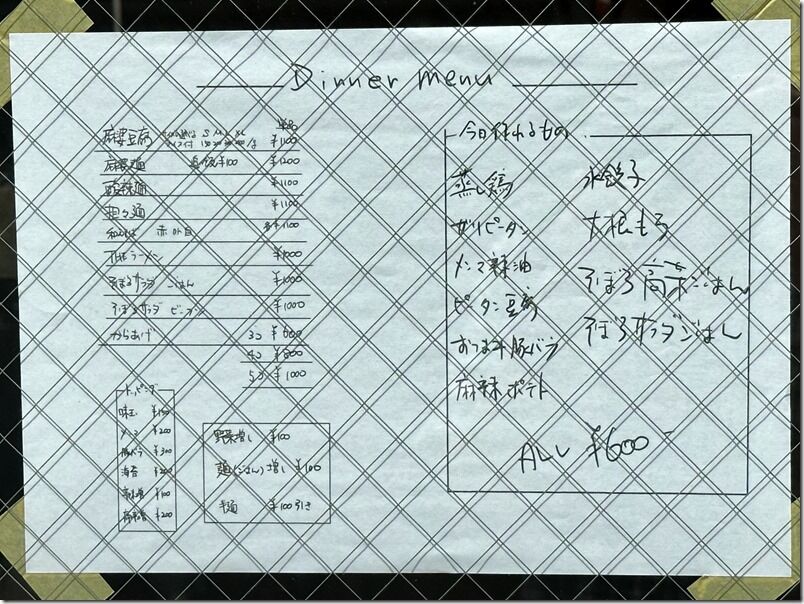 Dinner menu
単品
麻婆豆腐 S M L XL ¥1100
麻婆麺 ¥100 ¥1200
麺 ¥1100
担々麺 ¥1100
赤 or 白 ¥1100
ラーメン ¥1000
そぼろサラダごはん ¥1000
そぼろサラダ ビーフン ¥1000
からあげ 3コ ¥600
4コ ¥800
5コ ¥1000
トッピング
味玉 ¥150
メンマ ¥200
豚バラ ¥300
海苔 ¥200
¥100
¥200
野菜増し ¥100
麺(ごはん)増し ¥100
半麺 ¥100引き
今日作れるもの
蒸し鶏
ガリピータン
メンマ辣油
ピータン豆腐
おつまみ豚バラ
麻辣ポテト
水餃子
大根もち
そぼろ高菜ごはん
そぼろサラダごはん
ALL ¥600